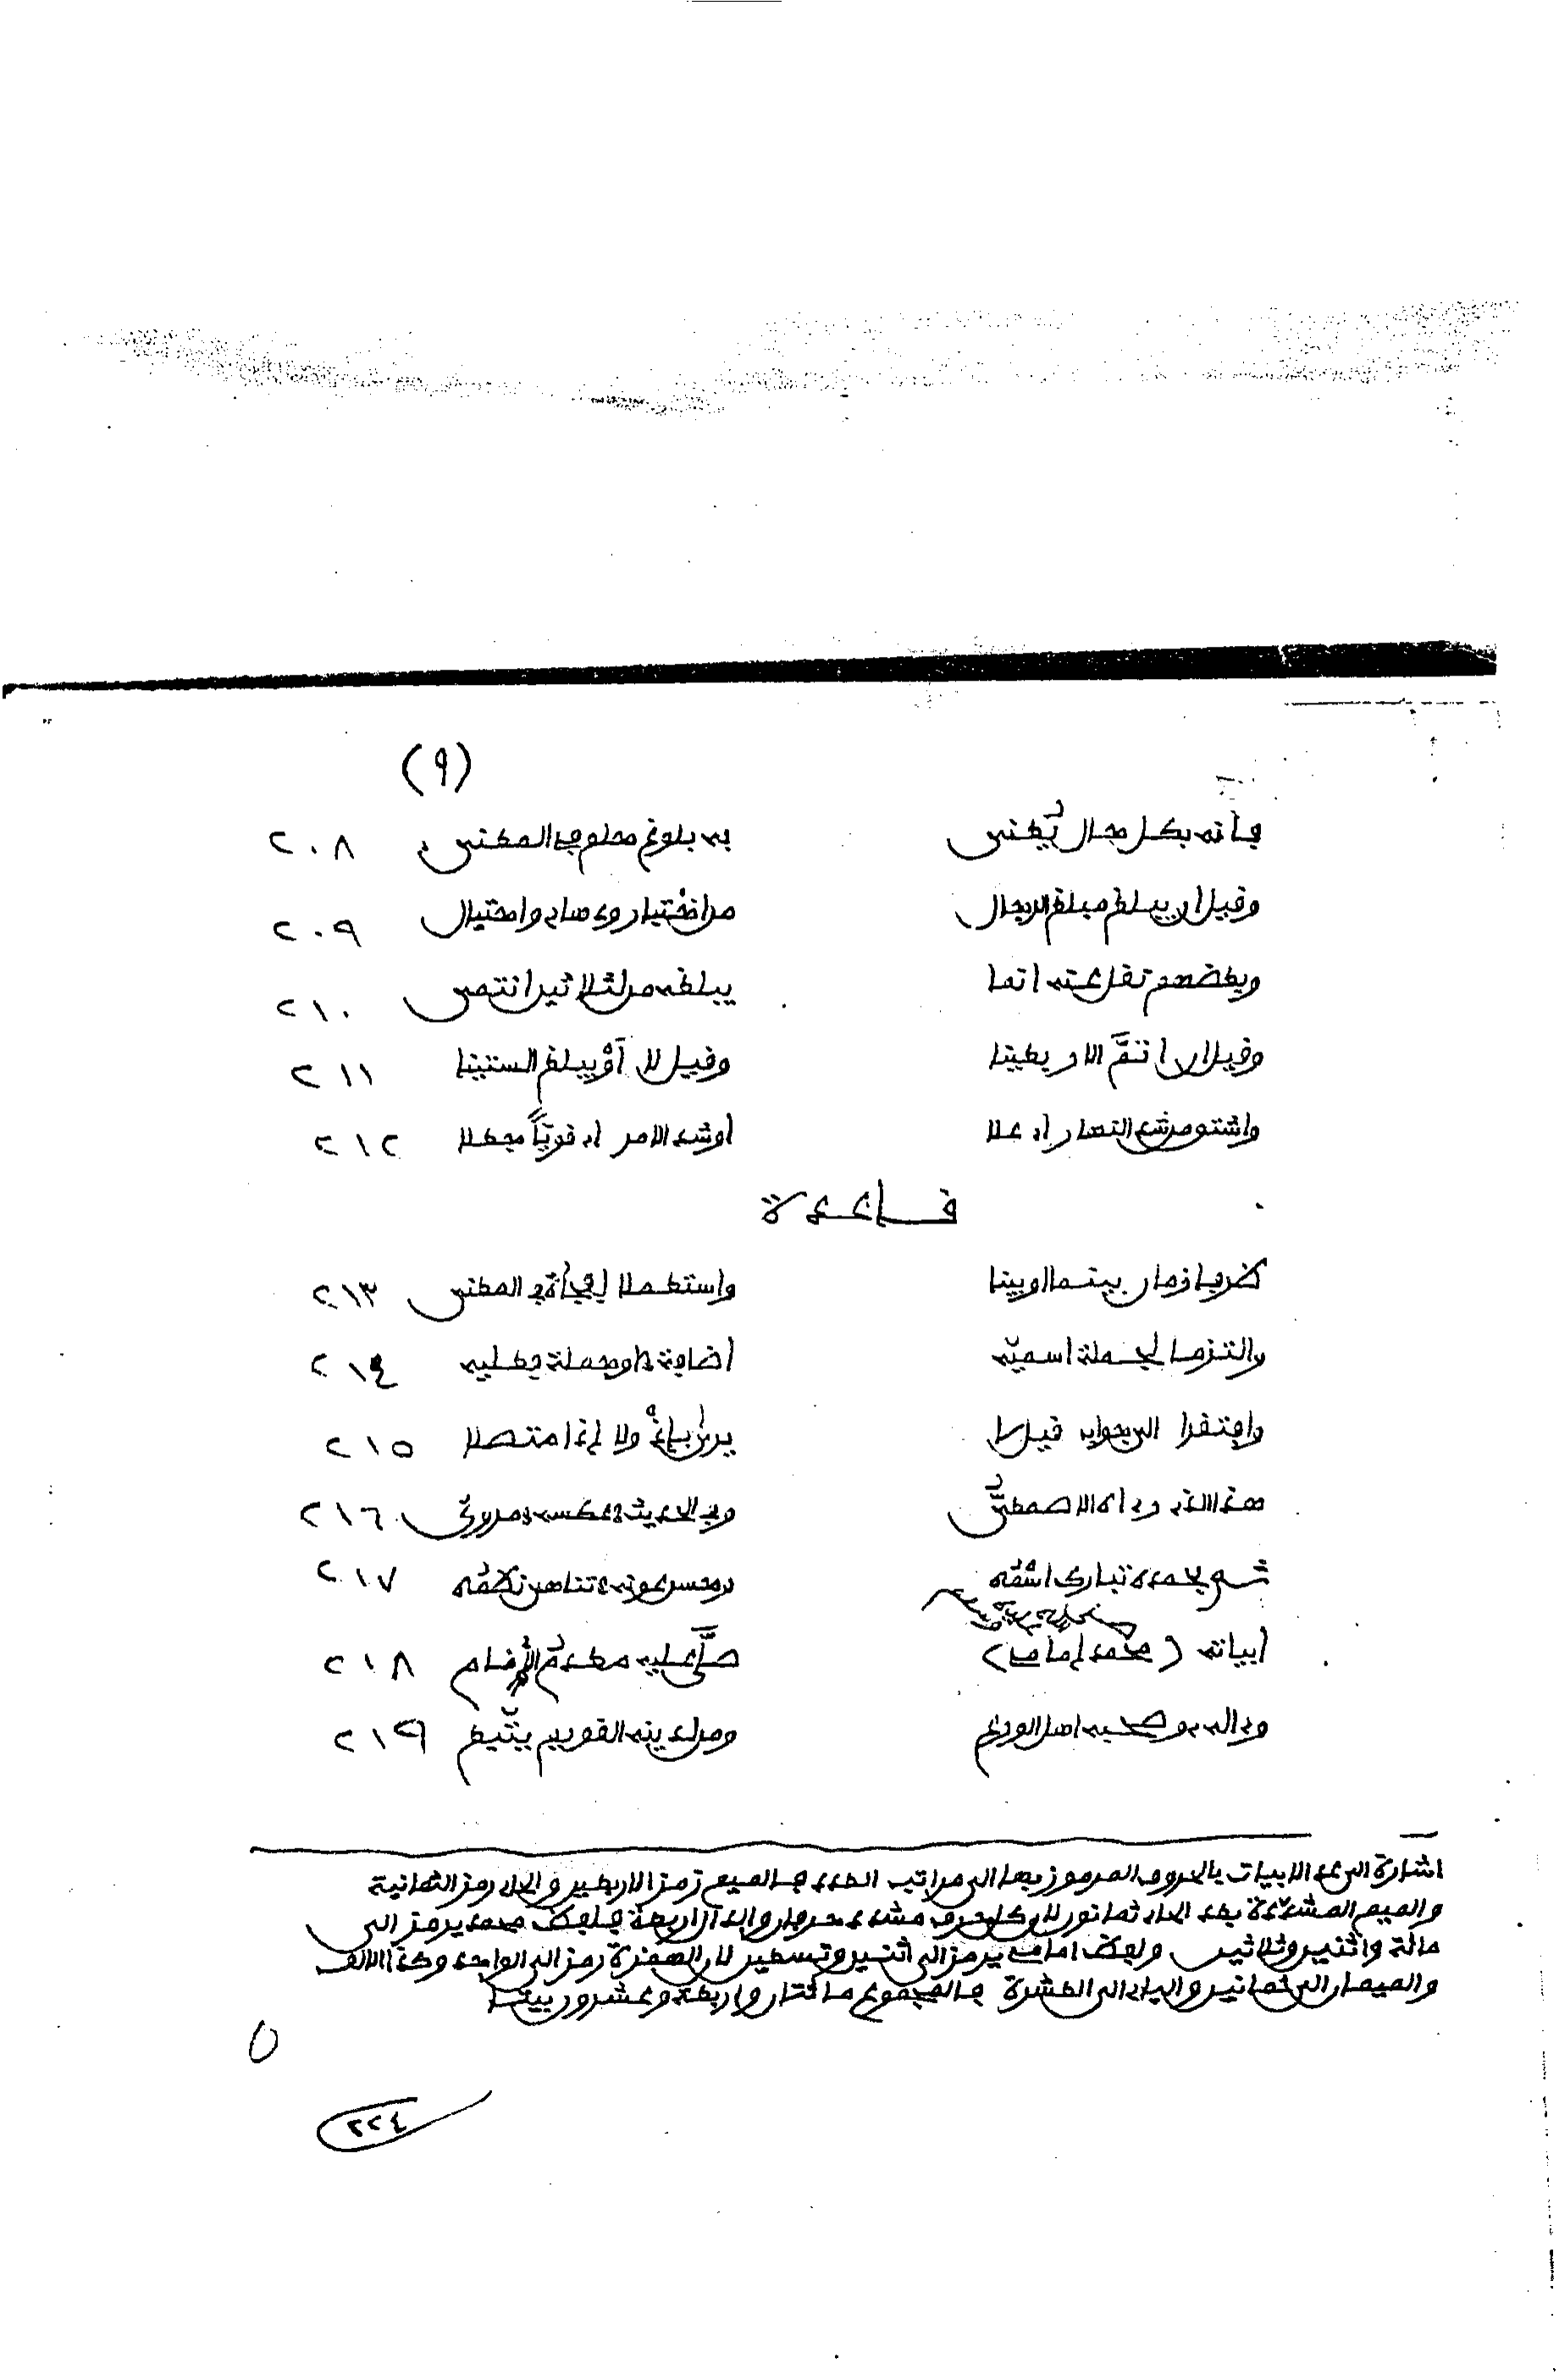 (٩)
فإنه بكل حال يُعتنى به بلوغ حلم في المعنى ٢٠٨
وقيل ان يبلغ مبلغ الرجال من اختيار وحساب واحتيال ٢٠٩
وبعضهم نقل عنه انما يبلغه من لثلاثين انتمى ٢١٠
وقيل ان اتمَّ الاربعينا وقيل لا أوْ يبلغ الستينا ٢١١
واشتق من شد النهار اذ علا اوشد الامر اذ قويّاً جعلا ٢١٢
قاعدة
ظرفا زمان بينما اوبينا واستعملا لفجأة في المعنى ٢١٣
والتزما لجملة اسميّه اضافة او جملة فعليه ٢١٤
وافتقرا الى جواب قيل لا يرى بإذْ ولا إذا متصلا ٢١٥
هذا الذي رءاه الاصمعيُّ وفي الحديث عكسه مرويّ ٢١٦
تم بحمده تبارك اسْمُه وحسن عونه تناهى نظمُه ٢١٧
ابياته (محمد إمامي) صلَّى عليه معدم الأرغام ٢١٨
وءاله وصحبه اهل الورع ومن لدينه القويم يتّبع ٢١٩
اشارة الى عد الابيات بالحروف المرموز بها الى مراتب العدد فالميم رمز الاربعين والحاء رمز الثمانية
والميم المشدّدة بعد الحاء ثمانون لان كل حرف مشدد حرفان والدال اربعة فلفظ محمد يرمز الى
مائة واثنين وثلاثين ولفظ امامي يرمز الى اثنين وتسعين لان الهمزة رمز الى الواحد وكذا الالف
والميمان الى ثمانين والياء الى العشرة فالمجموع مائتان واربعة وعشرون بيتا
٢٢٤